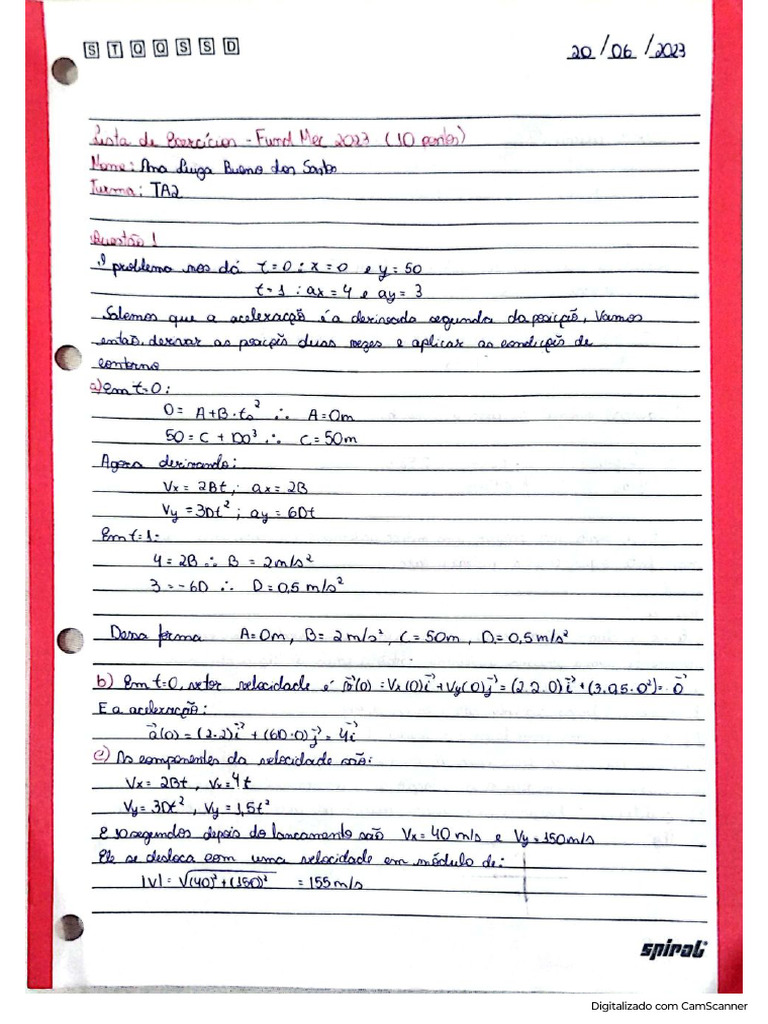 S T Q Q S S D
20/06/2023
Lista de Exercícios - Fund Mec 2023 (10 pontos)
Nome: Ana Luiza Bueno dos Santos
Turma: TA2
Questão 1
O problema nos dá t=0: x=0 e y=50
t=1: ax=4 e ay=3
Sabemos que a aceleração é a derivada segunda da posição, Vamos
então, derivar as posições duas vezes e aplicar as condições de
contorno
a) em t=0:
0= A+B·t₀² ∴ A=0m
50=C + D0³ ∴ C=50m
Agora derivando:
Vx=2Bt; ax=2B
Vy=3Dt²; ay=6Dt
Em t=1:
4=2B ∴ B=2m/s²
3=-6D ∴ D=0,5m/s²
Dessa forma A=0m, B=2m/s², C=50m, D=0,5m/s²
b) Em t=0, vetor velocidade é v⃗(0)=Vx(0)i⃗+Vy(0)j⃗=(2.2.0)i⃗+(3.0,5.0²)=0⃗
E a aceleração:
a⃗(0)=(2.2)i⃗+(6D.0)j⃗=4i⃗
c) As componentes da velocidade são:
Vx=2Bt, Vx=4t
Vy=3Dt², Vy=1,5t²
E 10 segundos depois do lançamento são Vx=40 m/s e Vy=150m/s
Ele se desloca com uma velocidade em módulo de:
|V|=√(40)²+(150)² =155m/s
spiral
Digitalizado com CamScanner